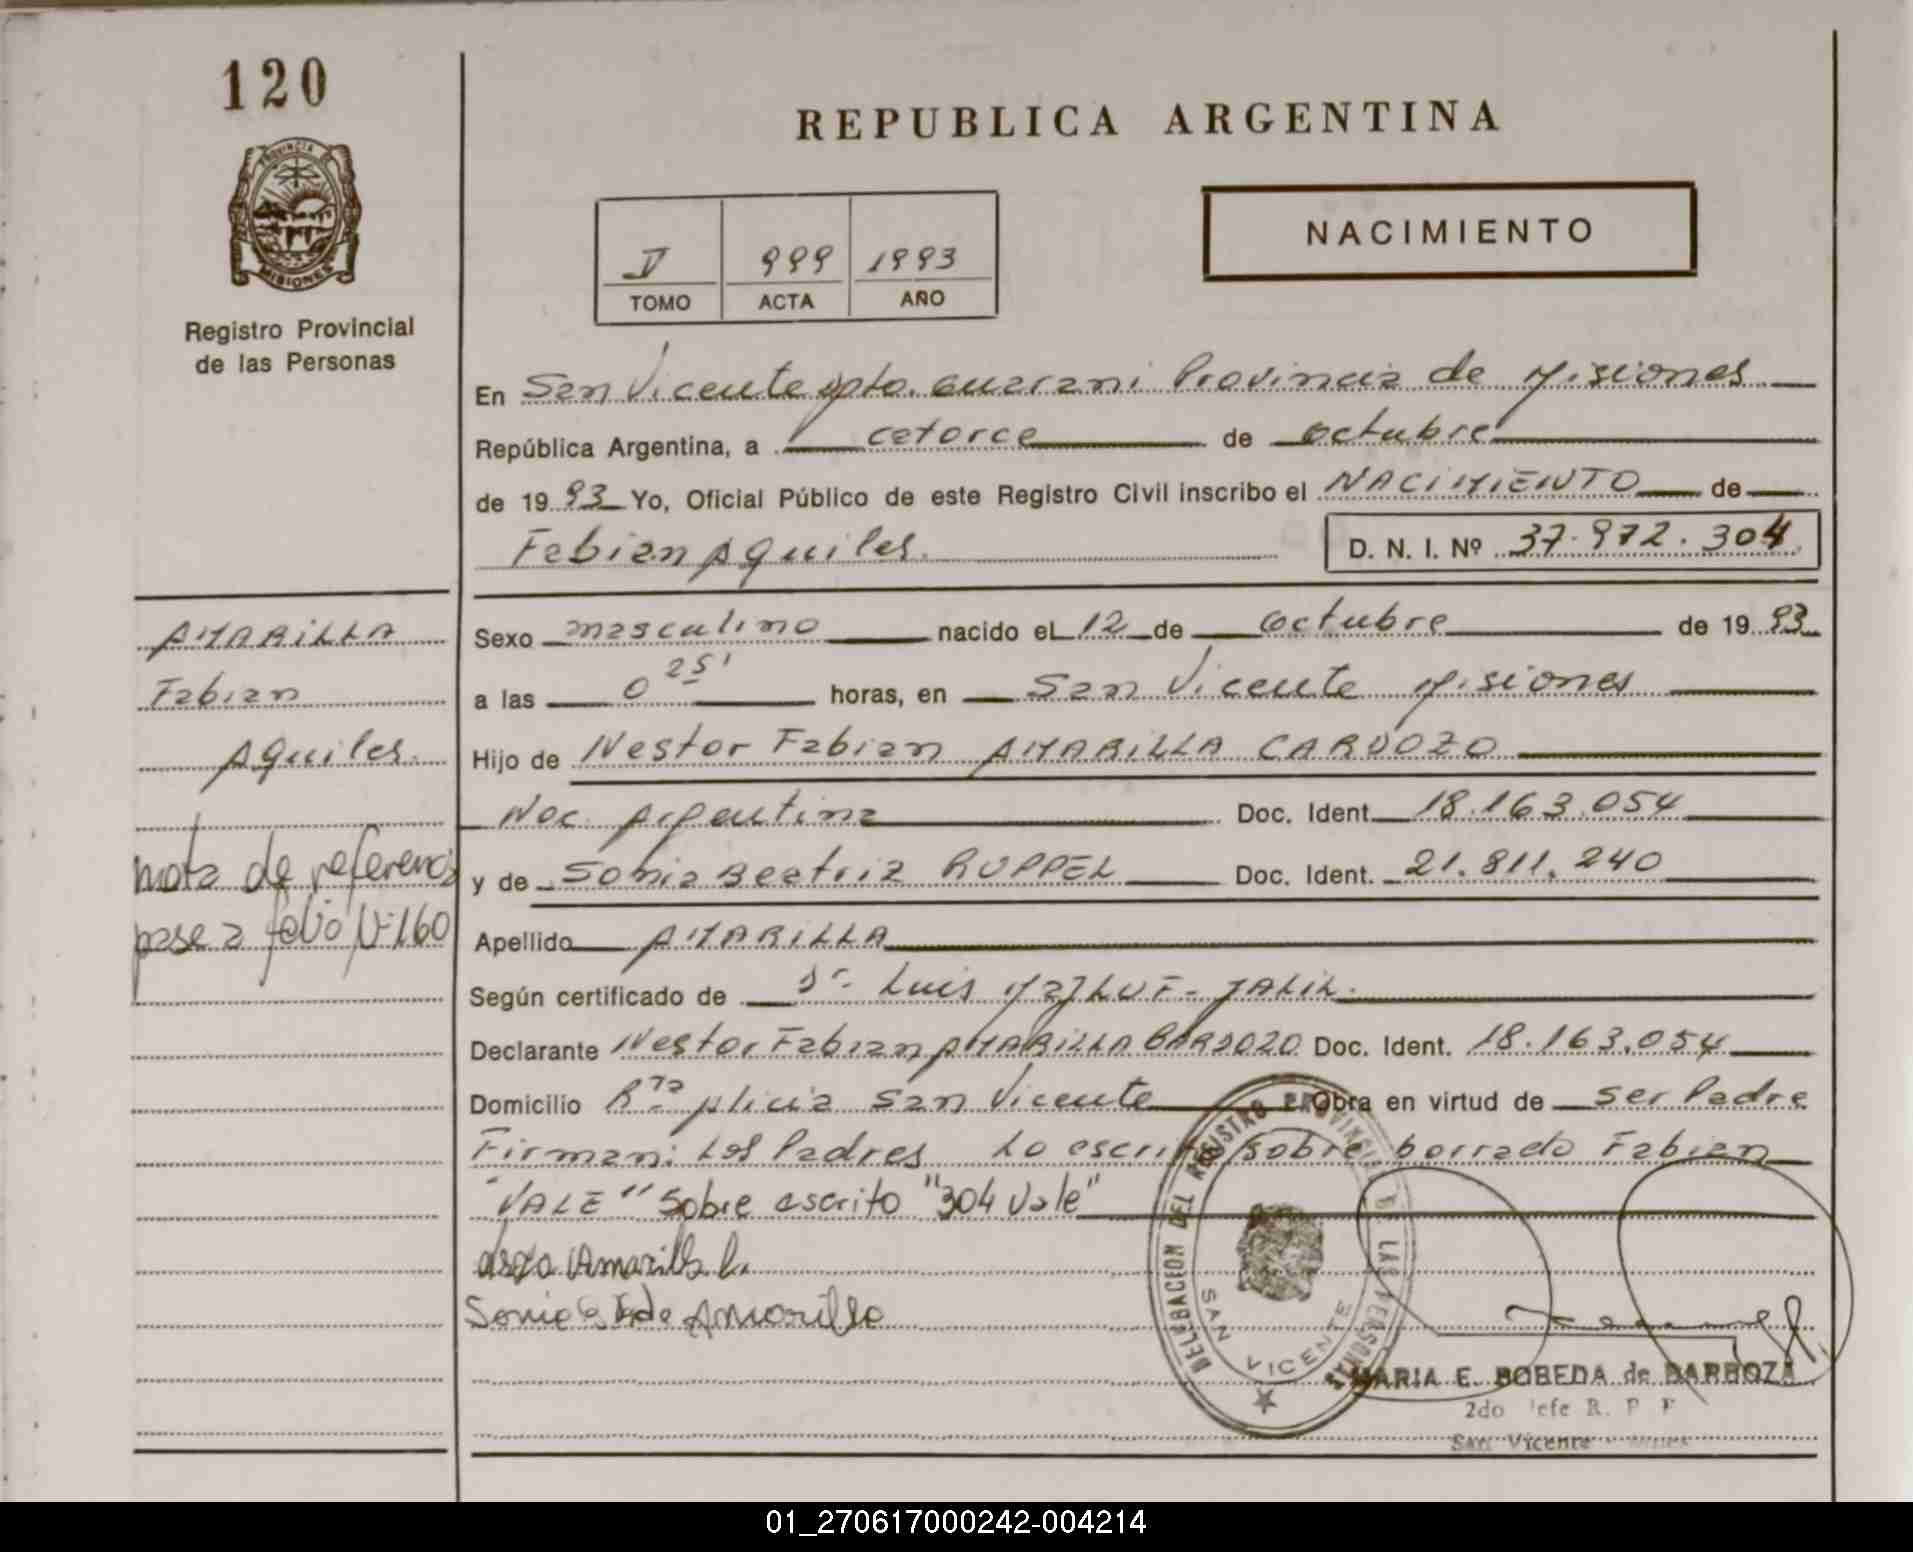 120
REPUBLICA ARGENTINA
PROVINCIA DE
MISIONES
Registro Provincial
de las Personas
V 999 1993
TOMO ACTA AÑO
NACIMIENTO
En San Vicente Dpto. Guarani Provincia de Misiones
República Argentina, a catorce de octubre
de 1993 Yo, Oficial Público de este Registro Civil inscribo el NACIMIENTO de
Fabian Aquiles. D. N. I. Nº 37.972.304
AMARILLA
Fabian
Aquiles.
nota de referencia
pase a folio Nº 160
Sexo masculino nacido el 12 de octubre de 1993
a las 0 25' horas, en San Vicente Misiones
Hijo de Nestor Fabian AMARILLA CARDOZO
Nac. Argentina Doc. Ident. 18.163.054
y de Sonia Beatriz RUPPEL Doc. Ident. 21.811.240
Apellido AMARILLA
Según certificado de Dr. Luis MAJLUF-JALIL.
Declarante Nestor Fabian AMARILLA CARDOZO Doc. Ident. 18.163.054
Domicilio Bª San Vicente Obra en virtud de ser Padre
Firman: Los Padres Lo escrito sobre borrado Fabian
"VALE" Sobre escrito "304 Vale"
Amarilla
Sonia de Amarilla
DELEGACION DEL REGISTRO PROVINCIAL DE LAS PERSONAS
SAN VICENTE
MARIA E. BOBEDA de BARBOZA
2do Jefe R. P. P
San Vicente
01_270617000242-004214